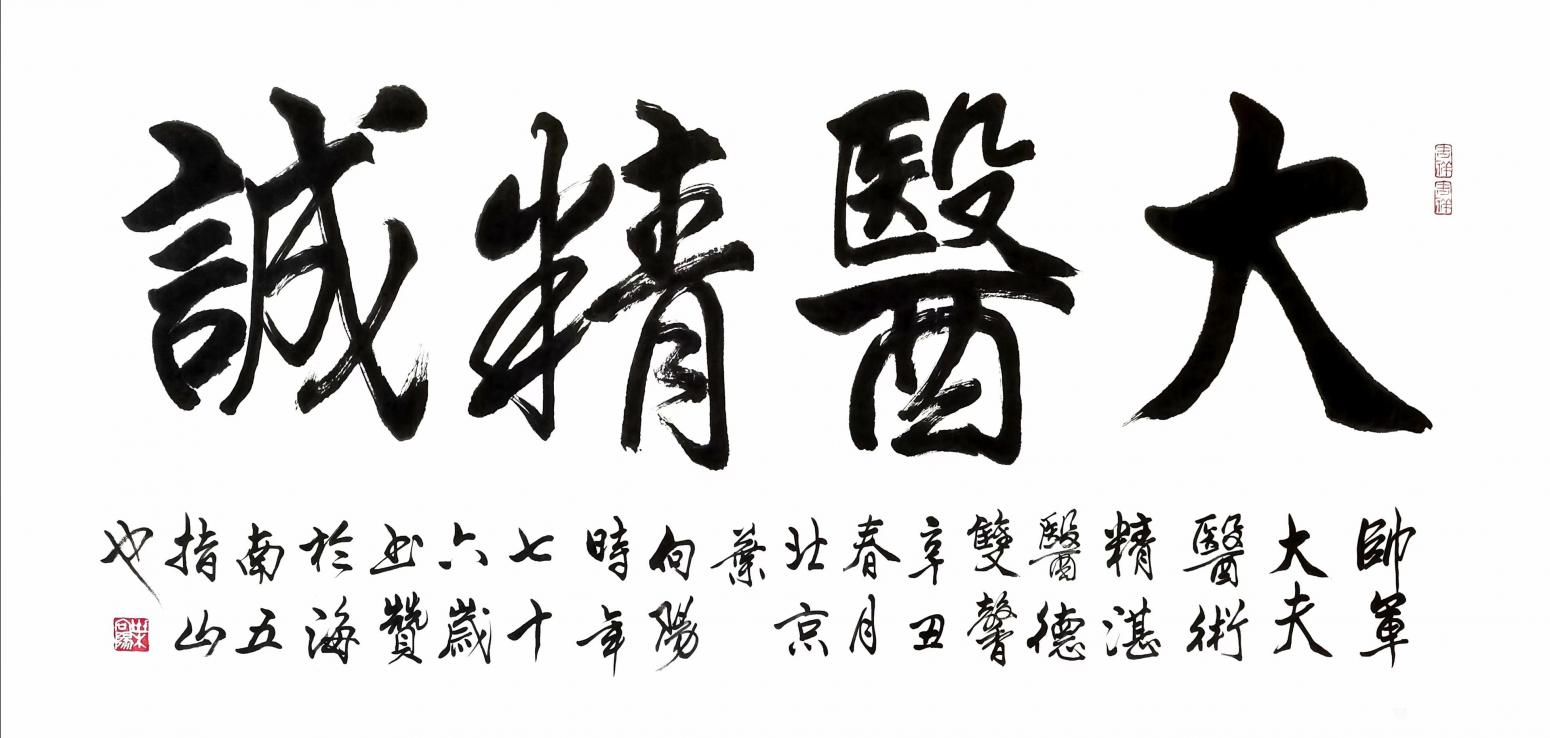 大醫精誠
帥軍
大夫
醫術
精湛
醫德
雙馨
辛丑
春月
北京
葉
向陽
時年
七十
六歲
书贊
於海
南五
指山
也
葉向陽